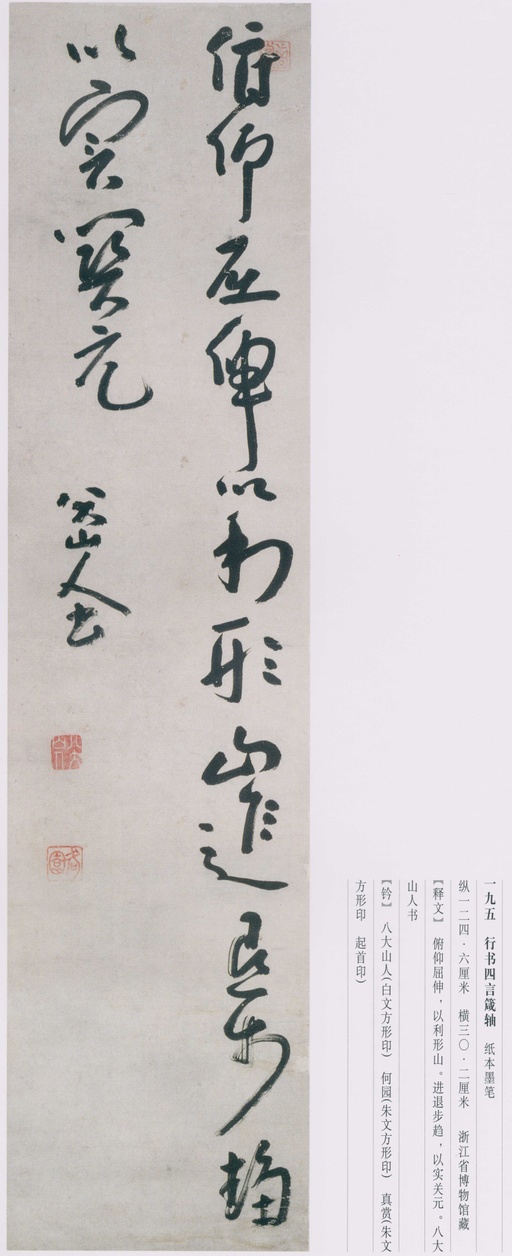 一九五 行书四言箴轴 纸本墨笔
纵一二四·六厘米 横三〇·二厘米 浙江省博物馆藏
〖释文〗 俯仰屈伸，以利形山。进退步趋，以实关元。八大
山人书
〖钤〗 八大山人(白文方形印) 何园(朱文方形印) 真赏(朱文
方形印 起首印)
俯仰屈伸以利形山進退步趨
以實關元 八大山人書